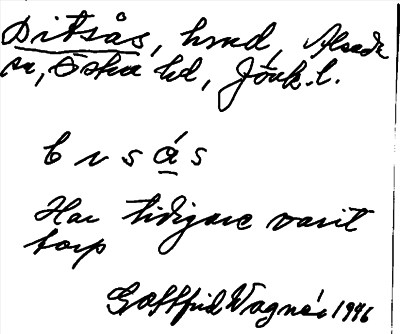 Bitsås, hmd, Alseda
sn, Östra hd, Jönk.l.
b ı s á s
Har tidigare varit
torp
Gottfrid Wagnér 1946